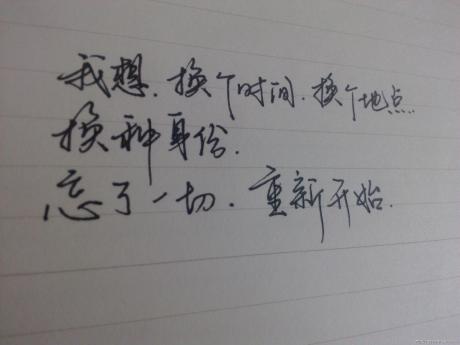 我想.换个时间.换个地点.
换种身份.
忘了一切.重新开始.